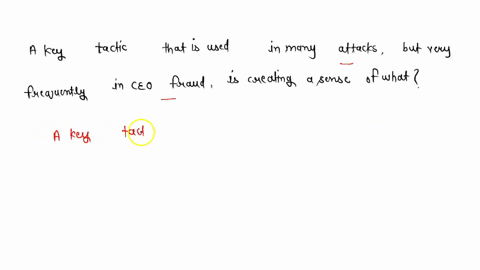 A key tactic that is used in many attacks, but very
frequently in CEO fraud, is creating a sense of what?
A key tad